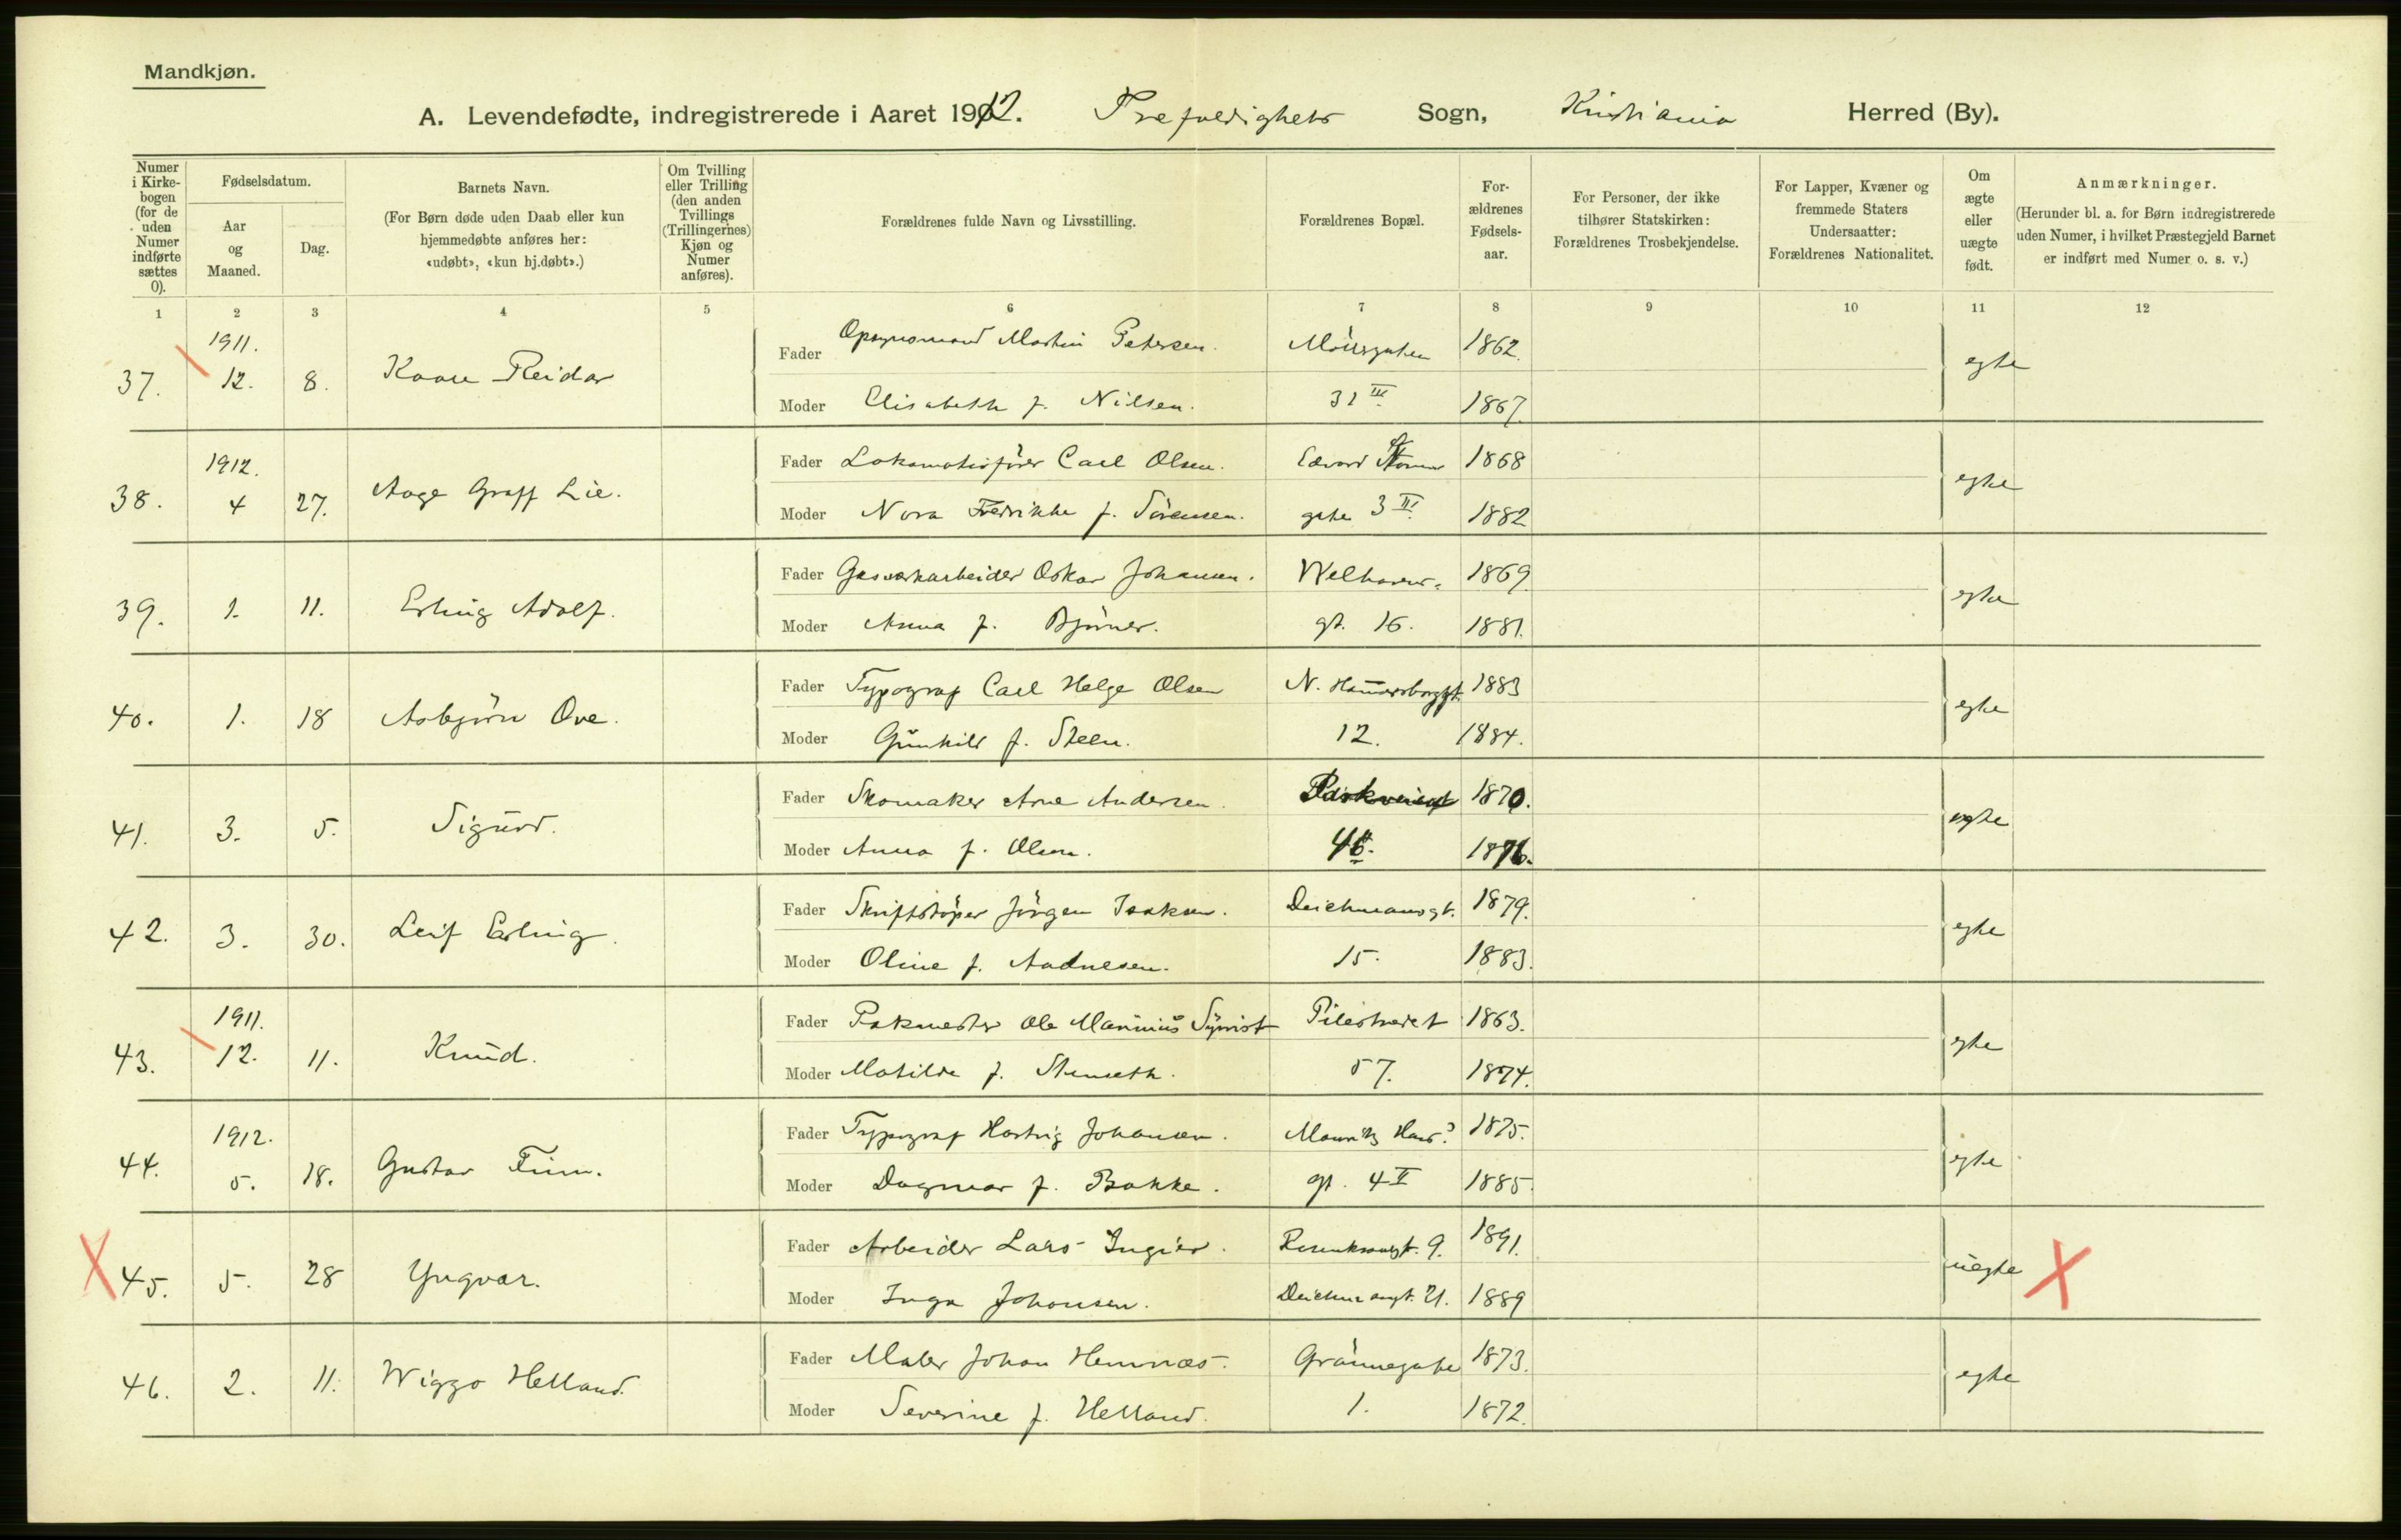 Mandkjøn.
A. Levendefødte, indregistrerede i Aaret 1912. Trefoldigheds Sogn, Kristiania Herred (By).
Numer i Kirkebogen (for de uden Numer indførte sættes 0).
Fødselsdatum.
Aar og Maaned.
Dag.
Barnets Navn.
(For Børn døde uden Daab eller kun hjemmedøbte anføres her: «udøbt», «kun hj.døbt».)
Om Tvilling eller Trilling (den anden Tvillings (Trillingernes) Kjøn og Numer anføres).
Forældrenes fulde Navn og Livsstilling.
Forældrenes Bopæl.
Forældrenes Fødselsaar.
For Personer, der ikke tilhører Statskirken: Forældrenes Trosbekjendelse.
For Lapper, Kvæner og fremmede Staters Undersaatter: Forældrenes Nationalitet.
Om ægte eller uægte født.
Anmærkninger.
(Herunder bl. a. for Børn indregistrerede uden Numer, i hvilket Præstegjeld Barnet er indført med Numer o. s. v.)
1 2 3 4 5 6 7 8 9 10 11 12
1911.
Fader Opsynsmand Martin Petersen. 1862.
37. 12. 8. Kaare Reidar egte
Moder Elisabeth f. Nilsen. 31 III 1867
1912.
Fader Lokomotivfører Carl Olsen. Edvard Storms 1868
38. 4 27. Aage Graff Lie. egte
Moder Nora Fredrikke f. Sörensen. gate 3 III. 1882
Fader Gasverkarbeider Oskar Johansen. Welhavens- 1869
39. 1. 11. Erling Adolf. egte
Moder Anna f. Björner. gt. 16. 1881.
Fader Typograf Carl Helge Olsen N. Hammersborggt. 1883
40. 1. 18 Asbjörn Ove. egte
Moder Gunhild f. Steen. 12. 1884.
Fader Skomaker Arne Andersen. Parkveien 1870.
41. 3. 5. Sigurd. egte
Moder Anna f. Olsen. 1876.
Fader Skriftstöper Jörgen Isaksen. Deichmansgt. 1879.
42. 3. 30. Leif Erling. egte
Moder Oline f. Andresen. 15. 1883.
1911.
Fader Pakmester Ole Marinius Pilestredet 1863.
43. 12. 11. Knud. egte
Moder Matilde f. Stenseth. 57. 1874.
1912.
Fader Typograf Hartvig Johansen. Mauritz Hans? 1875.
44. 5. 18. Gustav Finn. egte
Moder Dagmar f. Bakke. gt. 4 II 1885.
Fader Arbeider Lars Ingier. Rosenkransgt. 9. 1891.
X 45. 5. 28 Yngvar. uegte X
Moder Inga Johansen. Deichmansgt. 21. 1889
Fader Maler Johan Hemnæs. Grönnegate 1873.
46. 2. 11. Wiggo Helland. egte
Moder Severine f. Helland. 1. 1872.